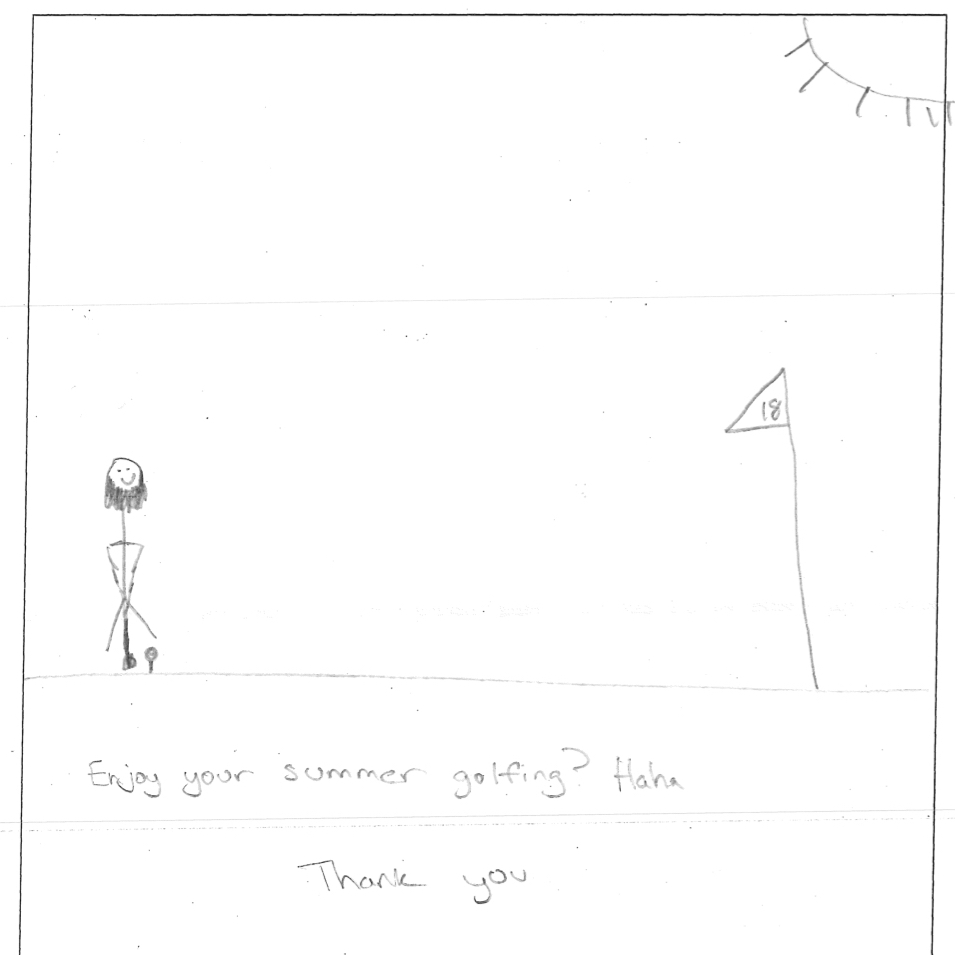 18
Enjoy your summer golfing? Haha
Thank you